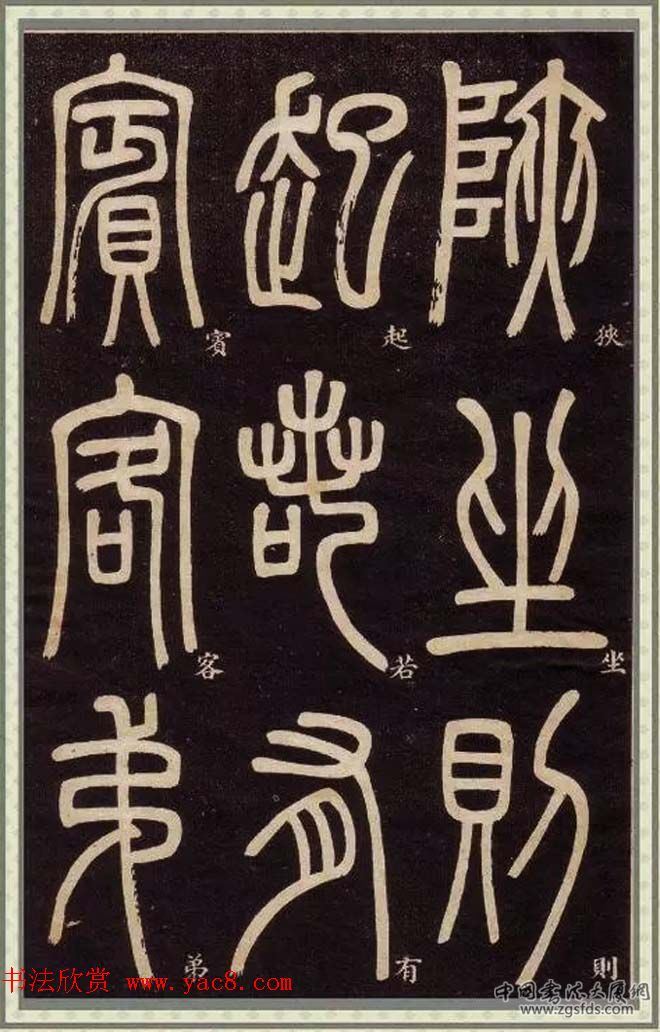 陝坐則
起若有
賓客弟
狹
坐
則
起
若
有
賓
客
弟
书法欣赏 www.yac8.com
中国书法大展網
www.zgsfds.com